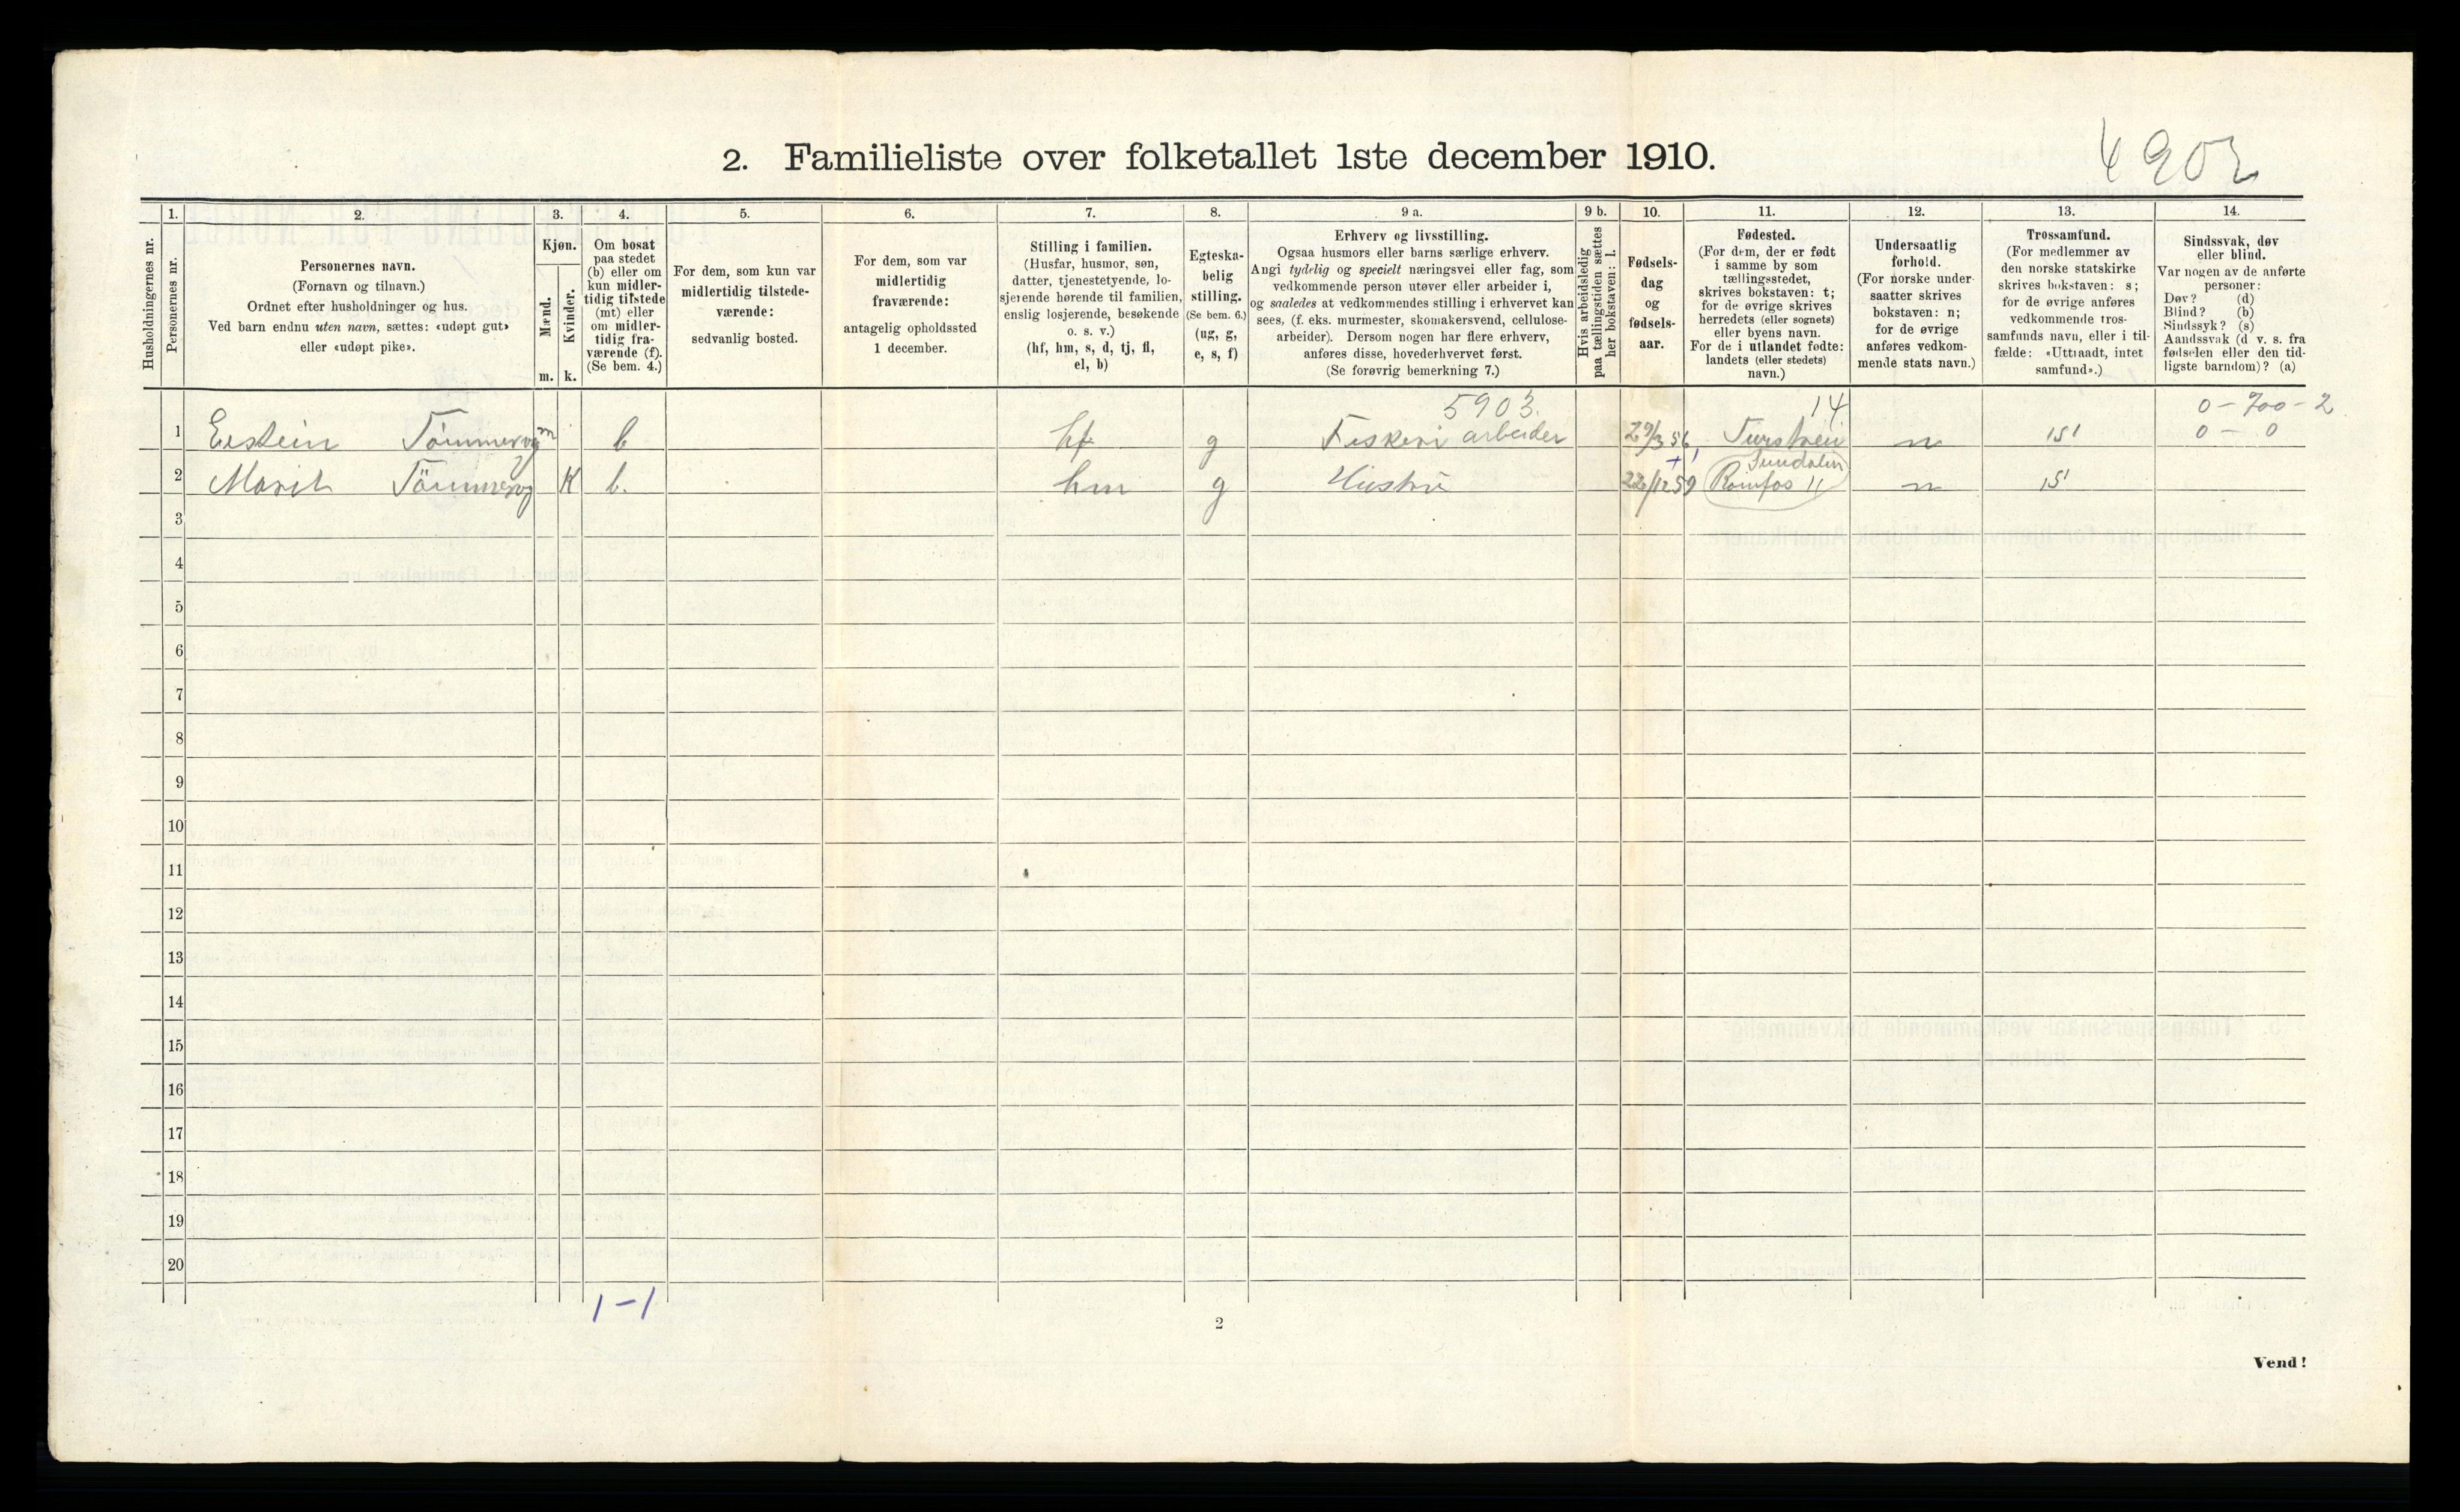 4902
2. Familieliste over folketallet 1ste december 1910.
Husholdningernes nr.
1.
Personernes nr.
2.
Personernes navn.
(Fornavn og tilnavn.)
Ordnet efter husholdninger og hus.
Ved barn endnu uten navn, sættes: «udøpt gut»
eller «udøpt pike».
3.
Kjøn.
Mænd.
m.
Kvinder.
k.
4.
Om bosat
paa stedet
(b) eller om
kun midler-
tidig tilstede
(mt) eller
om midler-
tidig fra-
værende (f).
(Se bem. 4.)
5.
For dem, som kun var
midlertidig tilstede-
værende:
sedvanlig bosted.
6.
For dem, som var
midlertidig
fraværende:
antagelig opholdssted
1 december.
7.
Stilling i familien.
(Husfar, husmor, søn,
datter, tjenestetyende, lo-
sjerende hørende til familien,
enslig losjerende, besøkende
o. s. v.)
(hf, hm, s, d, tj, fl,
el, b)
8.
Egteska-
belig
stilling.
(Se bem. 6.)
(ug, g,
e, s, f)
9 a.
Erhverv og livsstilling.
Ogsaa husmors eller barns særlige erhverv.
Angi tydelig og specielt næringsvei eller fag, som
vedkommende person utøver eller arbeider i,
og saaledes at vedkommendes stilling i erhvervet kan
sees, (f. eks. murmester, skomakersvend, cellulose-
arbeider). Dersom nogen har flere erhverv,
anføres disse, hovederhvervet først.
(Se forøvrig bemerkning 7.)
9 b.
Hvis arbeidsledig
paa tællingstiden sættes
her bokstaven: l.
10.
Fødsels-
dag
og
fødsels-
aar.
11.
Fødested.
(For dem, der er født
i samme by som
tællingsstedet,
skrives bokstaven: t;
for de øvrige skrives
herredets (eller sognets)
eller byens navn.
For de i utlandet fødte:
landets (eller stedets)
navn.)
12.
Undersaatlig
forhold.
(For norske under-
saatter skrives
bokstaven: n;
for de øvrige
anføres vedkom-
mende stats navn.)
13.
Trossamfund.
(For medlemmer av
den norske statskirke
skrives bokstaven: s;
for de øvrige anføres
vedkommende tros-
samfunds navn, eller i til-
fælde: «Uttraadt, intet
samfund».)
14.
Sindssvak, døv
eller blind.
Var nogen av de anførte
personer:
Døv? (d)
Blind? (b)
Sindssyk? (s)
Aandssvak (d. v. s. fra
fødselen eller den tid-
ligste barndom)? (a)
5903. 14 0-700-2
1 Eistein Tömmervg m b hf g Fiskeri arbeider 29/3 56 n s 0 - 0
Sundalen
2 Marit Tömmervg K b. hm g Hustru 22/12 59 Romfos n s
3
4
5
6
7
8
9
10
11
12
13
14
15
16
17
18
19
20
1-1
2
Vend!